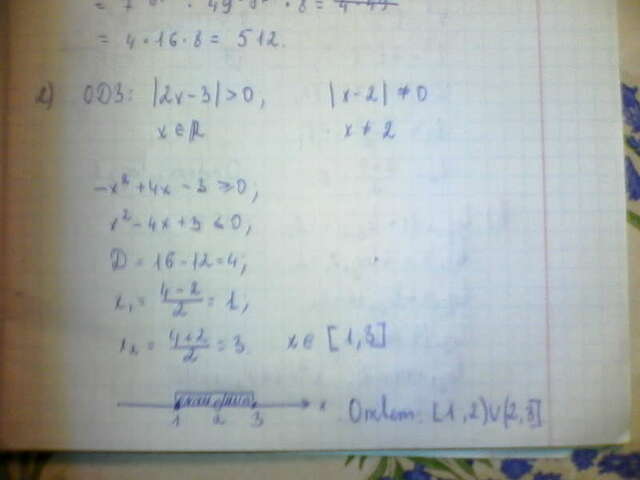 = 4 · 16 · 8 = 512.
2) ОДЗ: |2x - 3| > 0, |x - 2| ≠ 0
x ∈ R x ≠ 2
-x² + 4x - 3 ≥ 0,
x² - 4x + 3 ≤ 0,
D = 16 - 12 = 4;
x₁ = (4 - 2)/2 = 1;
x₂ = (4 + 2)/2 = 3 x ∈ [1, 3]
1 2 3 x Ответ: [1, 2) ∪ (2, 3]